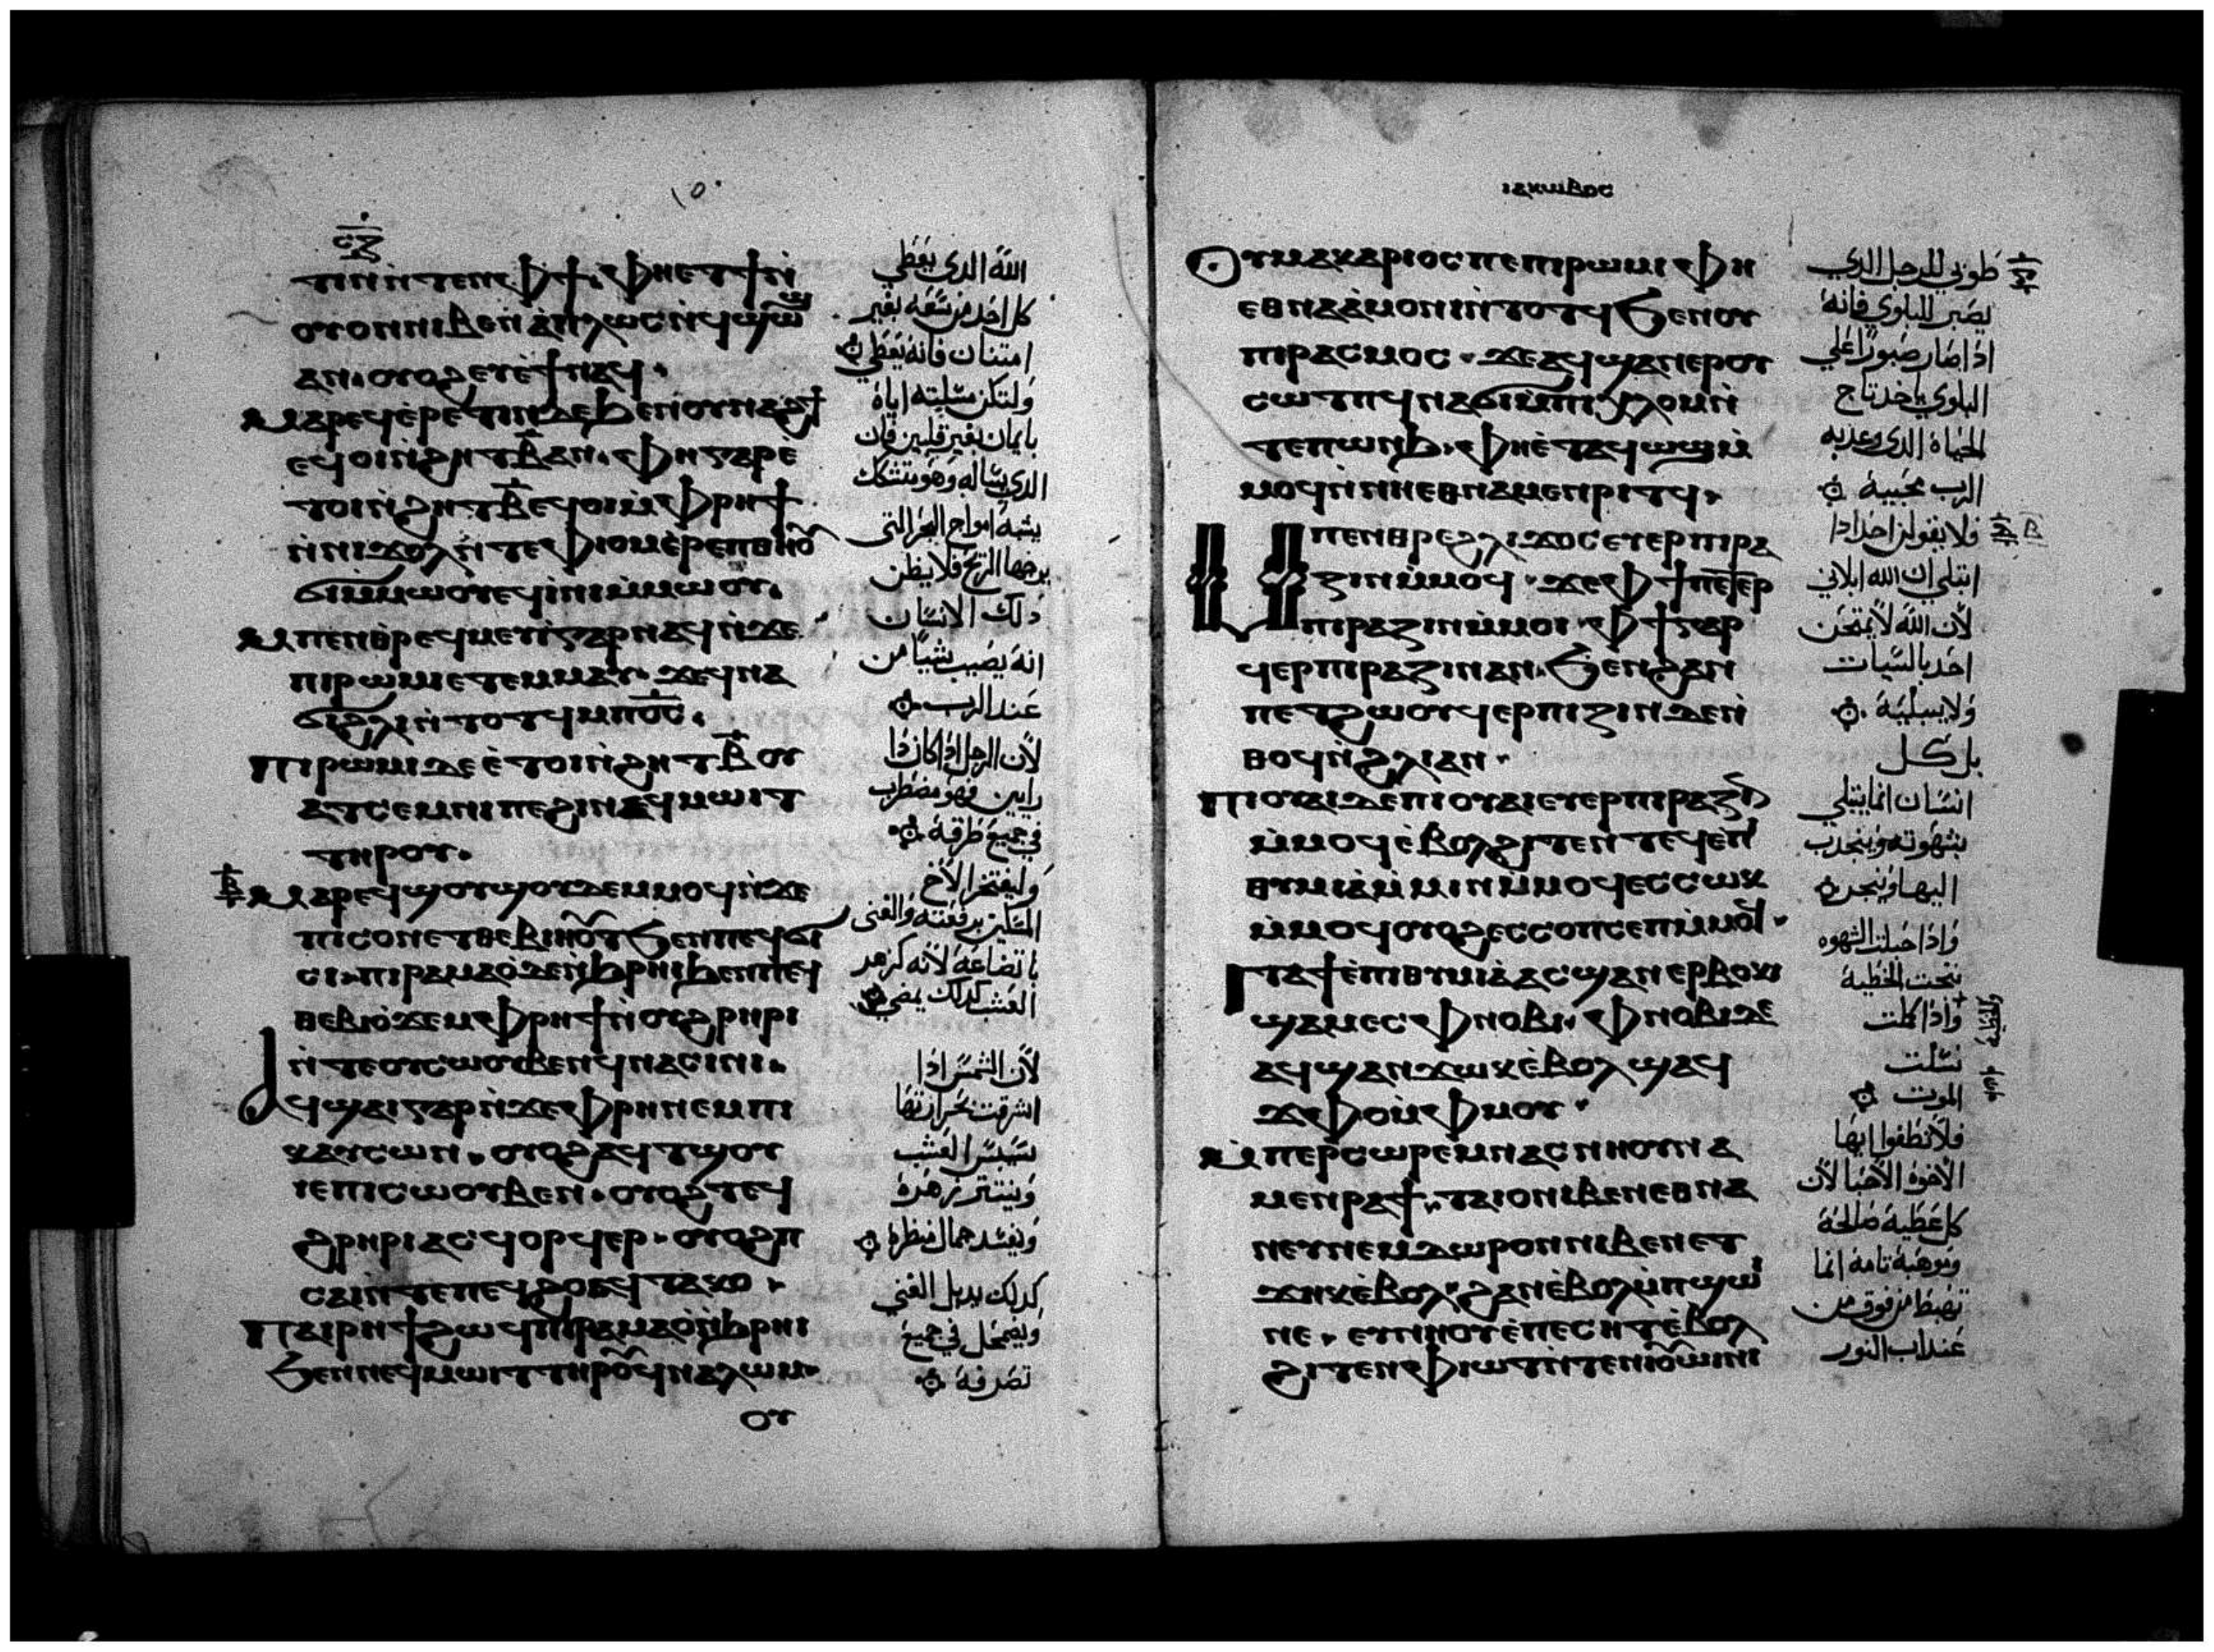 ⲧⲓⲛ ⲛ̀ⲧⲉⲛ ⲫϯ. ⲫⲏⲉⲧϯ ⲛ̀
ⲟⲩⲟⲛ ⲛⲓⲃⲉⲛ ϧⲉⲛ ⲟⲩ
ⲁⲛ. ⲟⲩⲟϩ ⲉⲩⲉ̀ϯ ⲛⲁϥ.
ⲙⲁⲣⲉϥⲉ̀ⲣⲉⲧⲓⲛ ⲇⲉ ϧⲉⲛ ⲟⲩⲛⲁϩϯ
ⲉϥⲟⲓ ⲛ̀ϩⲏⲧ ⲃ̅ ⲁⲛ. ⲫⲏ ⲅⲁⲣ ⲉ̀
ⲧⲟⲓ ⲛ̀ϩⲏⲧ ⲃ̅ ⲉϥⲟⲓ ⲙ̀ⲫⲣⲏϯ
ⲛ̀ⲛⲓϫⲟⲗ ⲛ̀ⲧⲉ ⲫⲓⲟⲙ ⲉ̀ⲣⲉ ⲡⲑⲏⲟⲩ
ϭⲓ ⲙ̀ⲙⲱⲟⲩ ⲉϥⲓ̀ⲛⲓ ⲙ̀ⲙⲱⲟⲩ.
ⲙⲡⲉⲛⲑⲣⲉϥⲙⲉⲩⲓ̀ ⲅⲁⲣ ⲛⲁϥ ⲛ̀ϫⲉ
ⲡⲓⲣⲱⲙⲓ ⲉⲧⲉⲙⲙⲁⲩ. ϫⲉ ϥⲛⲁ
ϭⲓ ϩⲗⲓ ⲛ̀ⲧⲟⲧϥ ⲙⲡⲟ̅ⲥ̅.
ⲡⲓⲣⲱⲙⲓ ⲇⲉ ⲉ̀ⲧⲟⲓ ⲛ̀ϩⲏⲧ ⲃ̅ ⲟⲩ
ⲁⲧⲥⲉⲙⲛⲓ ⲡⲉ ϩⲓ ⲛⲉϥⲙⲱⲓⲧ
ⲧⲏⲣⲟⲩ.
ⲙⲁⲣⲉϥϣⲟⲩϣⲟⲩ ⲇⲉ ⲙⲙⲟϥ ⲛ̀ϫⲉ
ⲡⲓⲥⲟⲛ ⲉⲧⲑⲉⲃⲓⲏⲟⲩⲧ ϧⲉⲛ ⲡⲉϥϭⲓ
ⲥⲓ. ⲡⲓⲣⲁⲙⲁⲟ̀ ⲇⲉ ⲛ̀ϧⲣⲏⲓ ϧⲉⲛ ⲡⲉϥ
ⲑⲉⲃⲓⲟ̀ ϫⲉ ⲙⲫⲣⲏϯ ⲛ̀ⲟⲩϩⲣⲏⲣⲓ
ⲛ̀ⲧⲉ ⲟⲩⲥⲱⲟⲩⲃⲉⲛ ϥⲛⲁⲥⲓⲛⲓ.
ⲁϥϣⲁⲓ ⲅⲁⲣ ⲛ̀ϫⲉ ⲫⲣⲏ ⲛⲉⲙ ⲡⲓ
ⲕⲁⲩⲥⲱⲛ. ⲟⲩⲟϩ ⲁϥⲧϣⲟⲩ
ⲓⲉ ⲡⲓⲥⲱⲟⲩⲃⲉⲛ. ⲟⲩⲟϩ ⲧⲉϥ
ϩⲣⲏⲣⲓ ⲁⲥϥⲟⲣϥⲉⲣ. ⲟⲩⲟϩ ⲡ
ⲥⲁⲓ ⲛ̀ⲧⲉ ⲡⲉϥϩⲟ ⲁϥⲧⲁⲕⲟ.
ⲡⲁⲓⲣⲏϯ ϩⲱϥ ⲡⲓⲣⲁⲙⲁⲟ̀ ⲛ̀ϧⲣⲏⲓ
ϧⲉⲛ ⲛⲉϥⲙⲱⲓⲧ ⲧⲏⲣⲟⲩ ϥⲛⲁⲗⲱⲙ.
ⲟⲩ
الله الدي يعطي
كل احد من سعة بغير
امتنان فانه يعطي
ولتكن مسلته اياه
بايمان بغير قلبين فان
الدي يساله وهو متشكك
يشبه امواج البحر التي
يرجها الريح فلا يظن
دلك الانسان
انه يصيب شيا من
عند الرب
لان الرجل ادا كان دا
رايين فهو مضطرب
في جميع طرقه
وليفتخر الاخ
المسكين برفعته والغني
باتضاعه لانه كزهر
العشب كدلك يمضي
لان الشمس ادا
اشرقت بحرارتها
ييبس العشب
وينتثر زهره
ويفسد جمال منظره
كدلك يدبل الغني
ويضمحل في جميع
تصرفه
ⲓⲁⲕⲱⲃⲟⲥ
ⲟⲩⲙⲁⲕⲁⲣⲓⲟⲥ ⲡⲉ ⲡⲓⲣⲱⲙⲓ ⲫⲏ
ⲉⲑⲛⲁⲁ̀ⲙⲟⲛⲓ ⲛ̀ⲧⲟⲧϥ ϧⲉⲛ ⲟⲩ
ⲡⲓⲣⲁⲥⲙⲟⲥ. ϫⲉ ⲁϥϣⲁⲛⲉⲣ ⲟⲩ
ⲥⲱⲧⲡ ϥⲛⲁϭⲓ ⲙ̀ⲡⲓⲭⲗⲟⲙ ⲛ̀
ⲧⲉ ⲡⲱⲛϧ. ⲫⲏⲉ̀ⲧⲁϥⲱϣ ⲙ̀
ⲙⲟϥ ⲛ̀ⲛⲏⲉⲑⲛⲁⲙⲉⲛⲣⲓⲧϥ.
ⲙⲡⲉⲛⲑⲣⲉ ϩⲗⲓ ϫⲟⲥ ⲉⲩⲉⲣⲡⲓⲣⲁ
ⲍⲓⲛ ⲙ̀ⲙⲟϥ. ϫⲉ ⲫϯ ⲡⲉⲧⲉⲣ
ⲡⲓⲣⲁⲍⲓⲛ ⲙ̀ⲙⲟⲓ. ⲫϯ ⲅⲁⲣ
ϥⲉⲣⲡⲓⲣⲁⲍⲓⲛ ⲁⲛ. ϧⲉⲛ ϩⲁⲛ
ⲡⲉⲧϩⲱⲟⲩ ϥⲉⲣⲡⲓⲍⲓⲛ ⲇⲉ ⲛ̀
ⲑⲟϥ ⲛ̀ϩⲗⲓ ⲁⲛ.
ⲡⲓⲟⲩⲁⲓ ⲇⲉ ⲡⲓⲟⲩⲁⲓ ⲉⲩⲉⲣⲡⲓⲣⲁⲍⲓⲛ
ⲙ̀ⲙⲟϥ ⲉ̀ⲃⲟⲗ ϩⲓⲧⲉⲛ ⲧⲉϥⲉⲡⲓ
ⲑⲩⲙⲓⲁ̀ ⲙ̀ⲙⲓⲛ ⲙ̀ⲙⲟϥ ⲉⲥⲥⲱⲕ
ⲙ̀ⲙⲟϥ ⲟⲩⲟϩ ⲉⲥⲥⲟⲡⲥⲉⲡ ⲙ̀ⲙⲟϥ.
ⲓⲧⲁ ϯⲉ̀ⲡⲓⲑⲩⲙⲓⲁ̀ ⲁⲥϣⲁⲛⲉⲣⲃⲟⲕⲓ
ϣⲁⲙⲉⲥ ⲫⲛⲟⲃⲓ. ⲫⲛⲟⲃⲓ ⲇⲉ
ⲁϥϣⲁⲛϫⲱⲕ ⲉ̀ⲃⲟⲗ ϣⲁϥ
ϫⲫⲟ ⲙ̀ⲫⲙⲟⲩ.
ⲙ̀ⲡⲉⲣⲥⲱⲣⲉⲙ ⲛⲁⲥⲛⲏⲟⲩ ⲛⲁ
ⲙⲉⲛⲣⲁϯ. ⲧⲁⲓⲟ ⲛⲓⲃⲉⲛ ⲉⲑⲛⲁ
ⲛⲉⲩ ⲛⲉⲙ ⲇⲱⲣⲟⲛ ⲛⲓⲃⲉⲛ ⲉⲧ
ϫⲏⲕ ⲉ̀ⲃⲟⲗ. ϩⲁⲛⲉ̀ⲃⲟⲗ ⲙ̀ⲡϣⲱⲓ
ⲛⲉ. ⲉⲩⲛⲏⲟⲩ ⲉ̀ⲡⲉⲥⲏⲧ ⲉ̀ⲃⲟⲗ
ϩⲓⲧⲉⲛ ⲫⲓⲱⲧ ⲛ̀ⲧⲉ ⲛⲓⲟⲩⲱⲓⲛⲓ
طوبي للرجل الدي
يصبر للبلوي فانه
ادا صار صبورا علي
البلوي ياخد تاج
الحياة الدي وعد به
الرب محبيه
فلا يقولن احد ادا
ابتلي ان الله ابلاني
لان الله لا يمتحن
احد بالسيات
ولا يبليه
بل كل
انسان انما يبتلي
بشهوته وينجدب
اليها وينجر
وادا حبلت الشهوه
نتجت الخطية
وادا كملت
الخطية
نسلت
الموت
فلا تطغوا ايها
الاخوة الاحبا لان
كل عطية صالحة
وموهبة تامة انما
تهبط من فوق من
عند اب النور